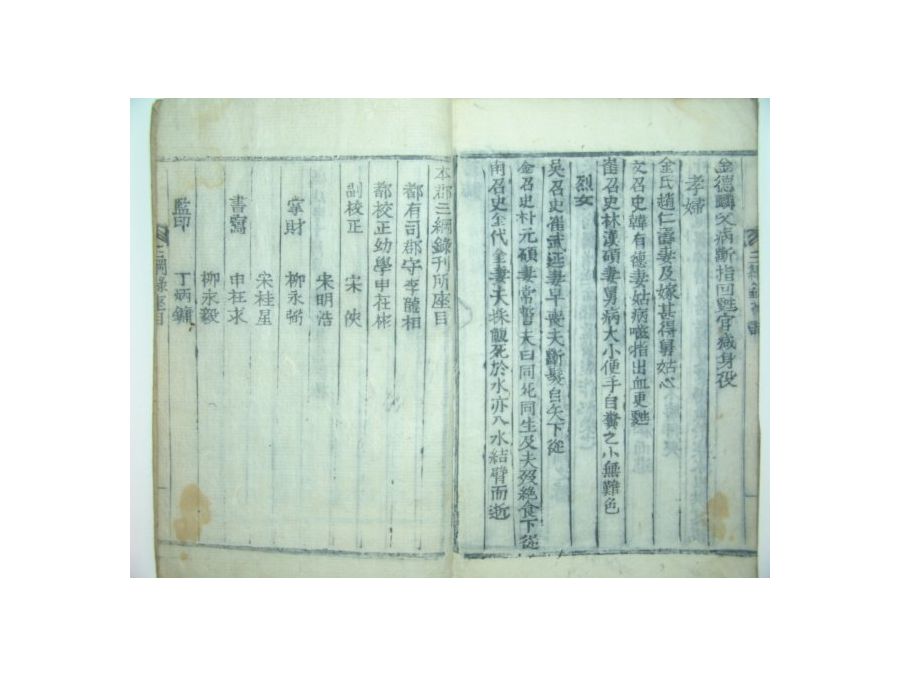 金德獜父病斷指回甦官蠲身役
孝婦
金氏趙仁壽妻及嫁甚得舅姑心
文召史韓有德妻姑病嚙指出血更甦
崔召史林漢碩妻舅病大小便手自糞之小無難色
烈女
吳召史崔武 妻早喪夫斷髮自矢下從
金召史朴元碩妻常誓夫曰同死同生及夫歿絶食下從
南召史全代 妻夫 死於水亦入水結臂而逝
三綱錄
本郡三綱錄刊所座目
都有司郡守李 相
都校正幼學申在彬
副校正 宋 俠
宋明浩
掌財 柳永弼
宋桂星
書寫 申在求
柳永毅
監印 丁炳鏞
三綱錄座目
一